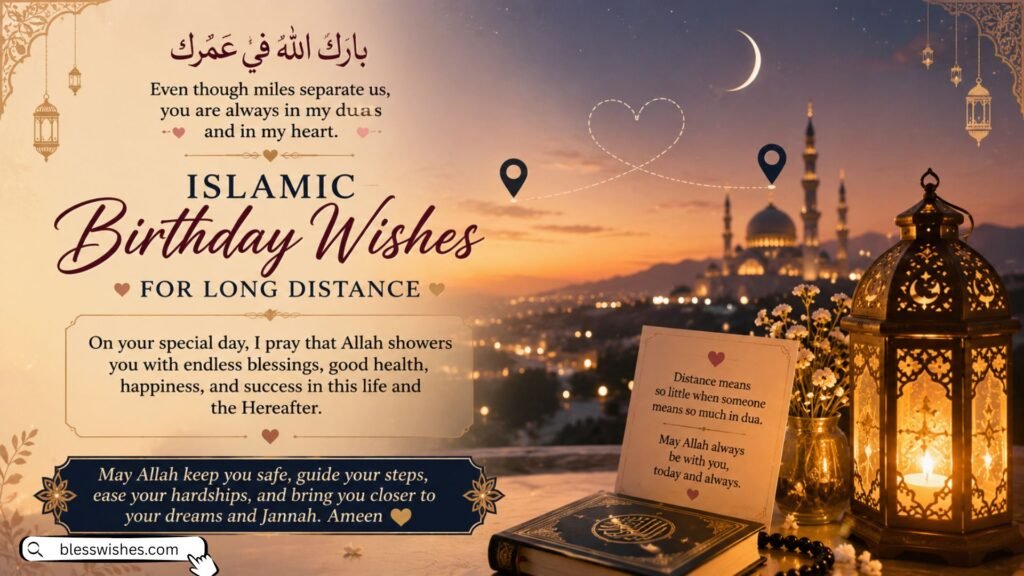 بارك الله في عَمُرك
Even though miles separate us,
you are always in my duas
and in my heart.
ISLAMIC
Birthday Wishes
FOR LONG DISTANCE
On your special day, I pray that Allah showers
you with endless blessings, good health,
happiness, and success in this life and
the Hereafter.
May Allah keep you safe, guide your steps,
ease your hardships, and bring you closer to
your dreams and Jannah. Ameen
blesswishes.com
Distance means
so little when someone
means so much in dua.
May Allah always
be with you,
today and always.